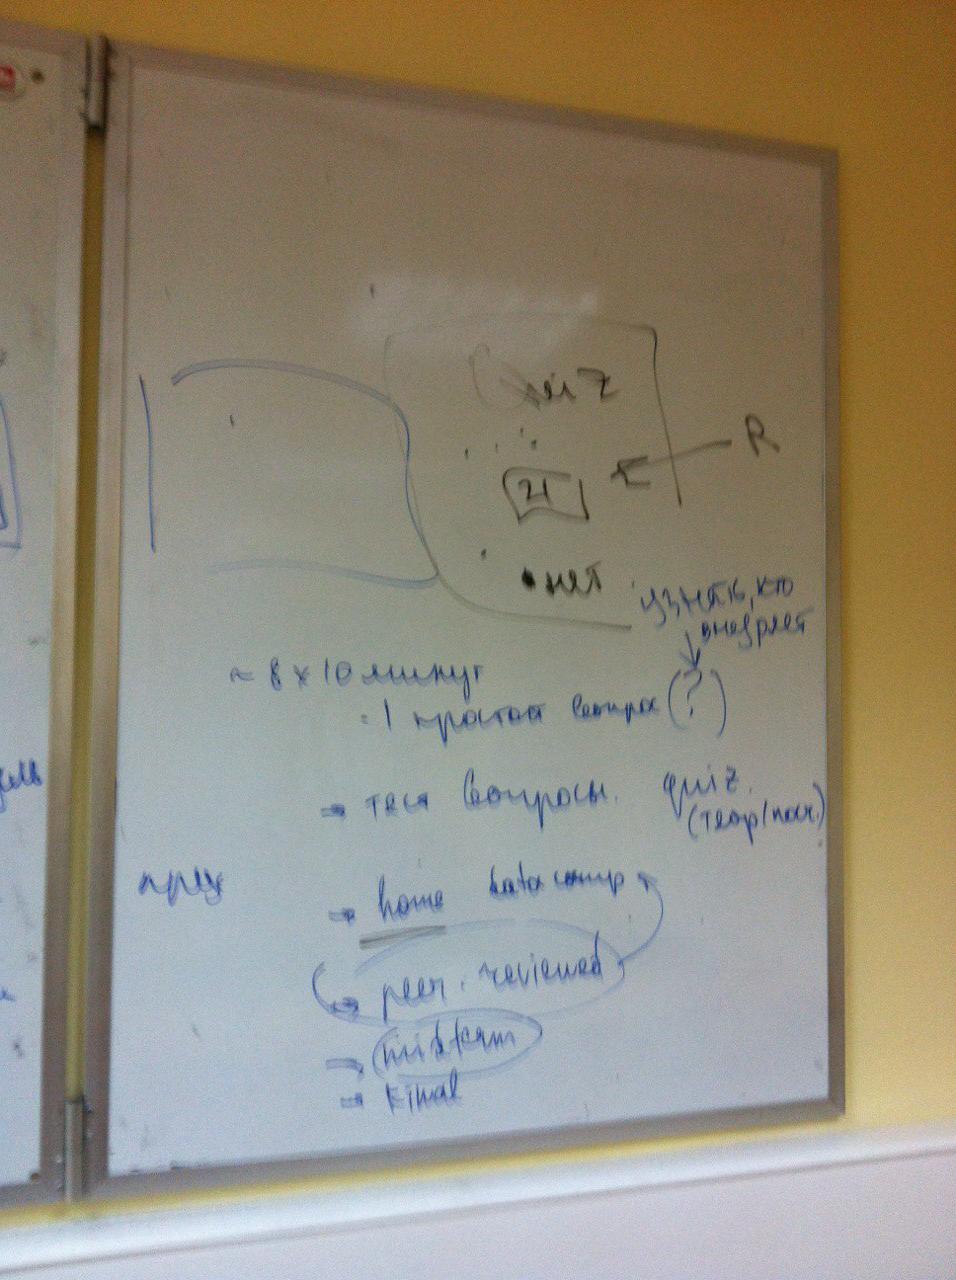 Quiz
R
21
• нет
узнать, кто
внедряет
~ 8 x 10 минут
1 простой вопрос (?)
→ тест вопросы. quiz.
(теор/
→ home datacamp
→ peer-reviewed
→ midterm
→ Final